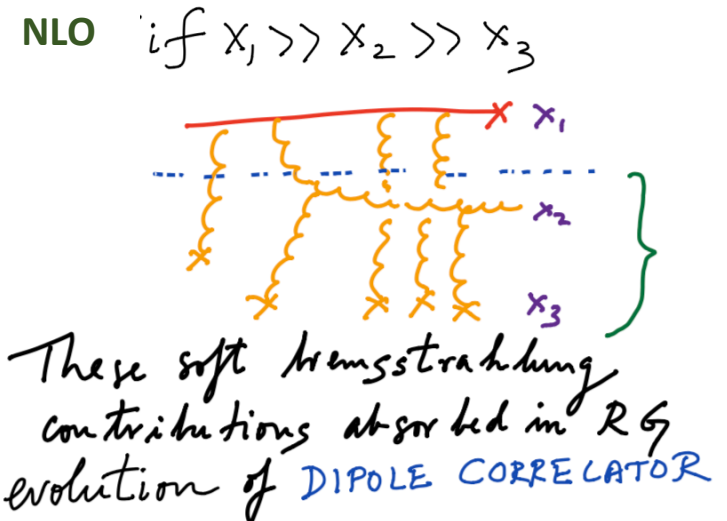 NLO if x₁ >> x₂ >> x₃
x₁
x₂
x₃
These soft bremsstrahlung
contributions absorbed in RG
evolution of DIPOLE CORRELATOR